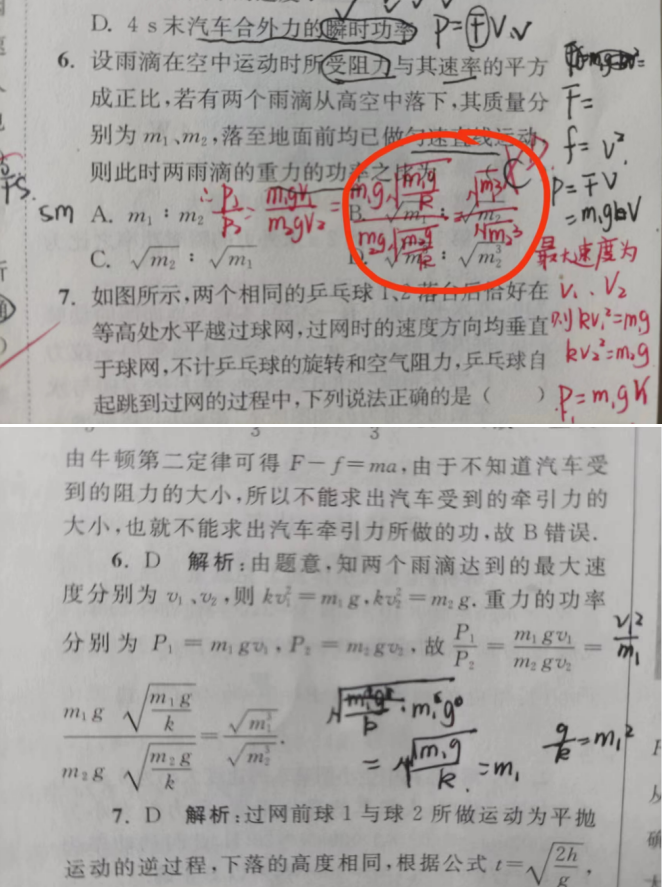 D. 4 s末汽车合外力的瞬时功率 P=FV.v
6. 设雨滴在空中运动时所受阻力与其速率的平方
F=
成正比,若有两个雨滴从高空中落下,其质量分
别为 m₁、m₂,落至地面前均已做匀速直线运动,
f = v².
则此时两雨滴的重力的功率之比为 ( C )
P = FV
= m₁g
∴ P₁/P₂ = m₁gV₁/m₂gV₂ = m₁g√(m₁g/k) / m₂g√(m₂g/k) = √m₁³ / √m₂³
sm A. m₁ : m₂ B. √m₁ : √m₂
C. √m₂ : √m₁ D. √m₁³ : √m₂³
最大速度为
V₁、V₂
则 kV₁²=m₁g
kV₂²=m₂g
P₁=m₁gV₁
7. 如图所示,两个相同的乒乓球1、2落台后恰好在
等高处水平越过球网,过网时的速度方向均垂直
于球网,不计乒乓球的旋转和空气阻力,乒乓球自
起跳到过网的过程中,下列说法正确的是 ( )
3 3
由牛顿第二定律可得 F−f=ma,由于不知道汽车受
到的阻力的大小,所以不能求出汽车受到的牵引力的
大小,也就不能求出汽车牵引力所做的功,故 B 错误.
6. D 解析:由题意,知两个雨滴达到的最大速
度分别为 v₁、v₂,则 kv₁²=m₁g,kv₂²=m₂g.重力的功率
分别为 P₁ = m₁gv₁,P₂ = m₂gv₂,故 P₁/P₂ = m₁gv₁/m₂gv₂ =
m₁g √(m₁g/k) / m₂g √(m₂g/k) = √m₁³ / √m₂³.
= √(m₁g/k) = m₁
g/k = m₁²
7. D 解析:过网前球 1 与球 2 所做运动为平抛
运动的逆过程,下落的高度相同,根据公式 t=√(2h/g),